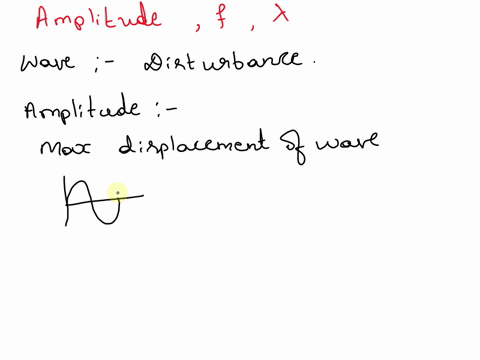 Amplitude , f , λ
Wave :- Disturbance .
Amplitude :-
Max displacement of wave